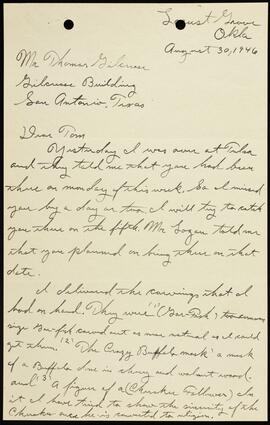 Locust Grove
Okla
August 30, 1946
Mr Thomas Gilcrease
Gilcrease Building
San Antonio, Texas
Dear Tom
Yesterday I was over at Tulsa
and they told me that you had been
there on monday of this week. So I missed
you by a day or two. I will try to catch
you there on the fifth. Mr Logan told me
that you planned on being there on that
date.
I delivered the carvings that I
had on hand. They were (1) (Gar-Fish)
size Gar-fish carved out as near natural as I could
get them. (2) The Crazy Buffalo mask" a mask
of a Buffalo done in cherry and walnut wood.
and (3) A figure of a (Cherokee
it I have tried to show the sincerity of the
Cherokee once he is converted to religion,